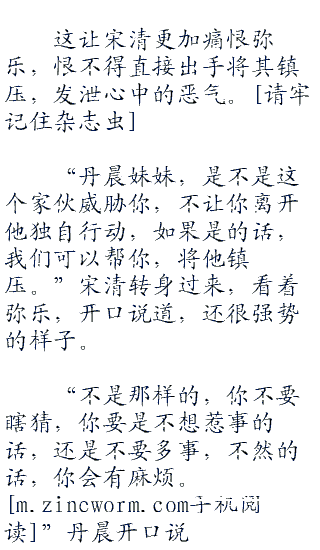 这让宋清更加痛恨弥
乐，恨不得直接出手将其镇
压，发泄心中的恶气。[请牢
记住杂志虫]
“丹晨妹妹，是不是这
个家伙威胁你，不让你离开
他独自行动，如果是的话，
我们可以帮你，将他镇
压。”宋清转身过来，看着
弥乐，开口说道，还很强势
的样子。
“不是那样的，你不要
瞎猜，你要是不想惹事的
话，还是不要多事，不然的
话，你会有麻烦。
[m.zincworm.com手机阅
读]”丹晨开口说